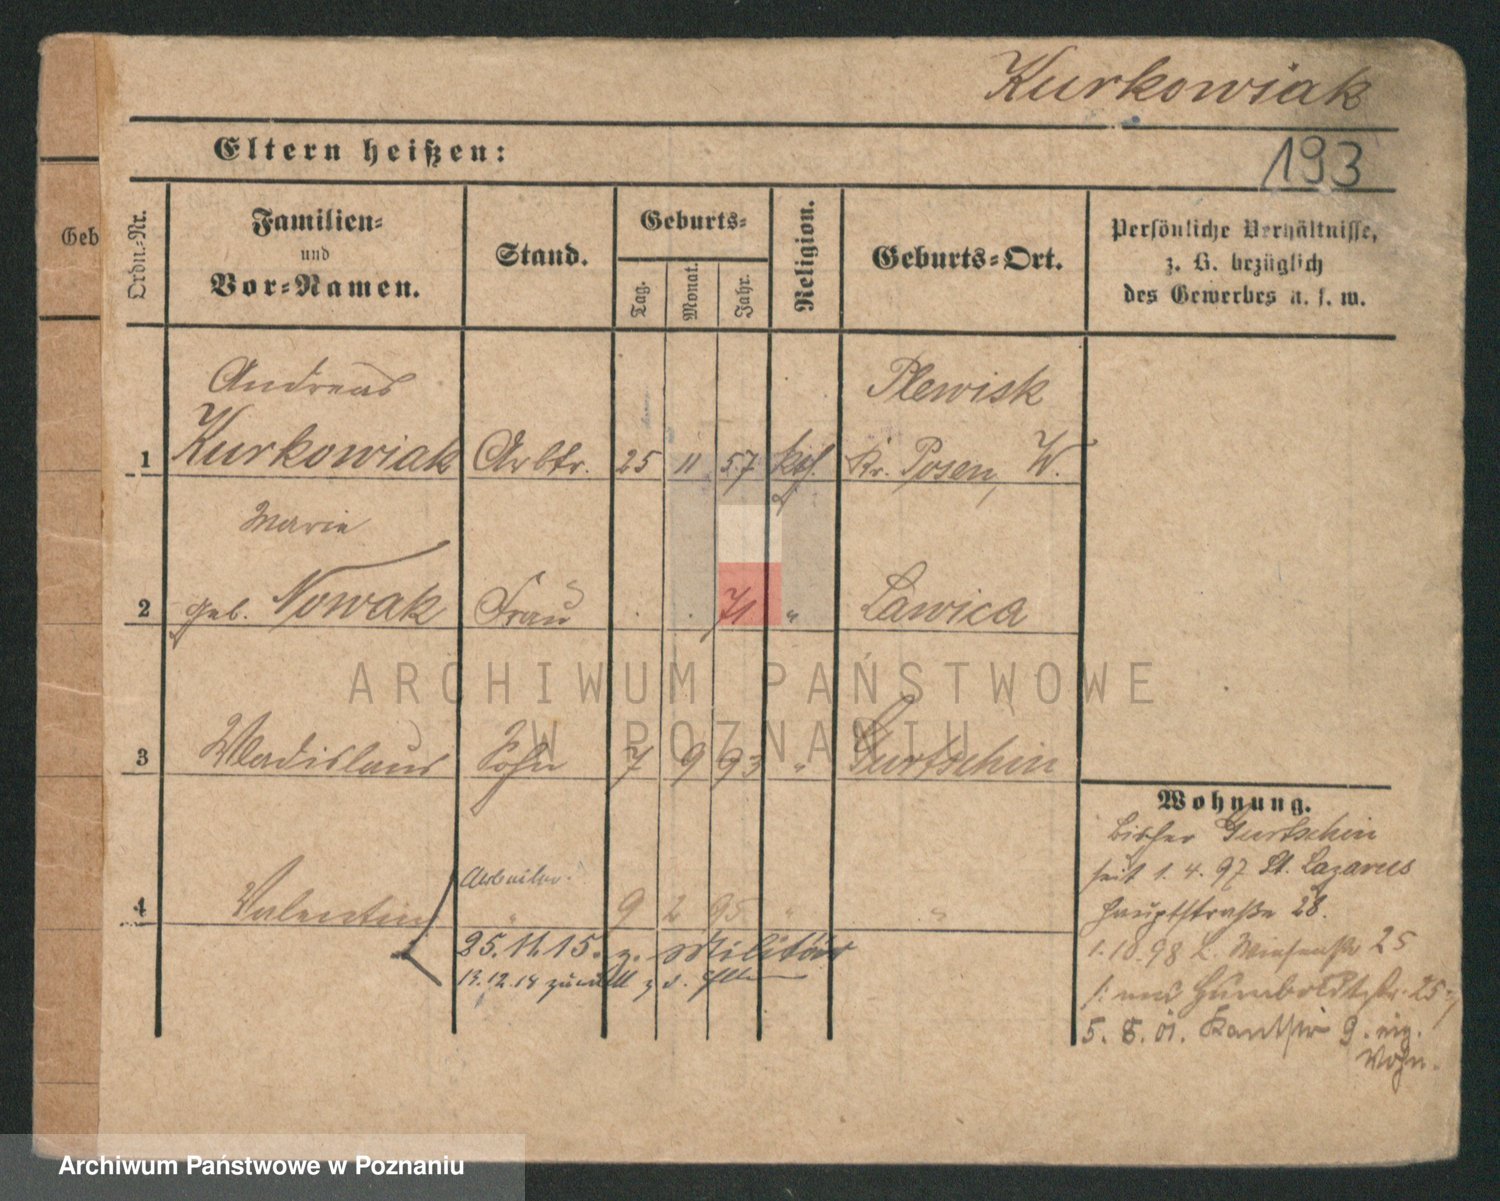 Kurkowiak
Eltern heißen:
193
Geb
Ordn.-Nr.
Familien-
und
Vor-Namen.
Stand.
Geburts-
Tag.
Monat.
Jahr.
Religion.
Geburts-Ort.
Persönliche Verhältnisse,
z. B. bezüglich
des Gewerbes u. s. w.
Andreas Plewisk
1 Kurkowiak Arbtr. 25 11 57 kth. Kr. Posen, W.
Marie
2 geb. Nowak Frau . . 71 " Lawica
ARCHIWUM PAŃSTWOWE
W POZNANIU
3 Wladislaus Sohn 7 9 93 " Gurtschin
Wohnung.
bisher Gurtschin
seit 1. 4. 97 St. Lazarus
Hauptstraße 28.
1.10.98 L. Wiesenstr 25
/: neu Humboldtstr. 25 :/
5. 8. 01. Kantstr 9. eig.
Wohn.
Arbeiter.
4 Valentin " 9 2 95 " "
25.11.15. z. Militär
13.12.18 zurück z. d. Eltern
Archiwum Państwowe w Poznaniu